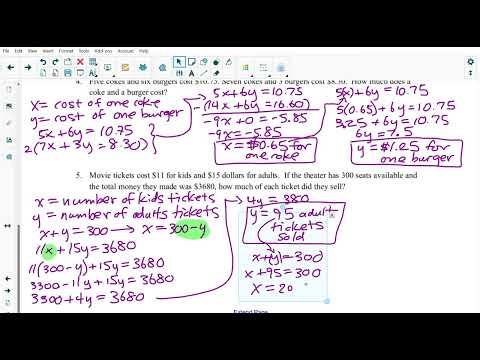 4. Five cokes and six burgers cost $10.75. Seven cokes and 3 burgers cost $8.30. How much does a
coke and a burger cost?
x = cost of one coke
y = cost of one burger
5x+6y = 10.75
2(7x + 3y = 8.30)
5x+6y = 10.75
-(14x +6y = 16.60)
-9x +0 = -5.85
-9x = -5.85
x = $0.65 for
one coke
5(x) + 6y = 10.75
5(0.65) + 6y = 10.75
3.25 + 6y = 10.75
6y = 7.5
y = $1.25 for
one burger
5. Movie tickets cost $11 for kids and $15 dollars for adults. If the theater has 300 seats available and
the total money they made was $3680, how much of each ticket did they sell?
x = number of kids tickets
y = number of adults tickets
x+y = 300 → x = 300-y
11x + 15y = 3680
11(300-y) + 15y = 3680
3300 - 11y + 15y = 3680
3300 + 4y = 3680
4y = 380
y = 95 adult
tickets
sold
x+(y) = 300
x +95 = 300
x = 20
Extend Page